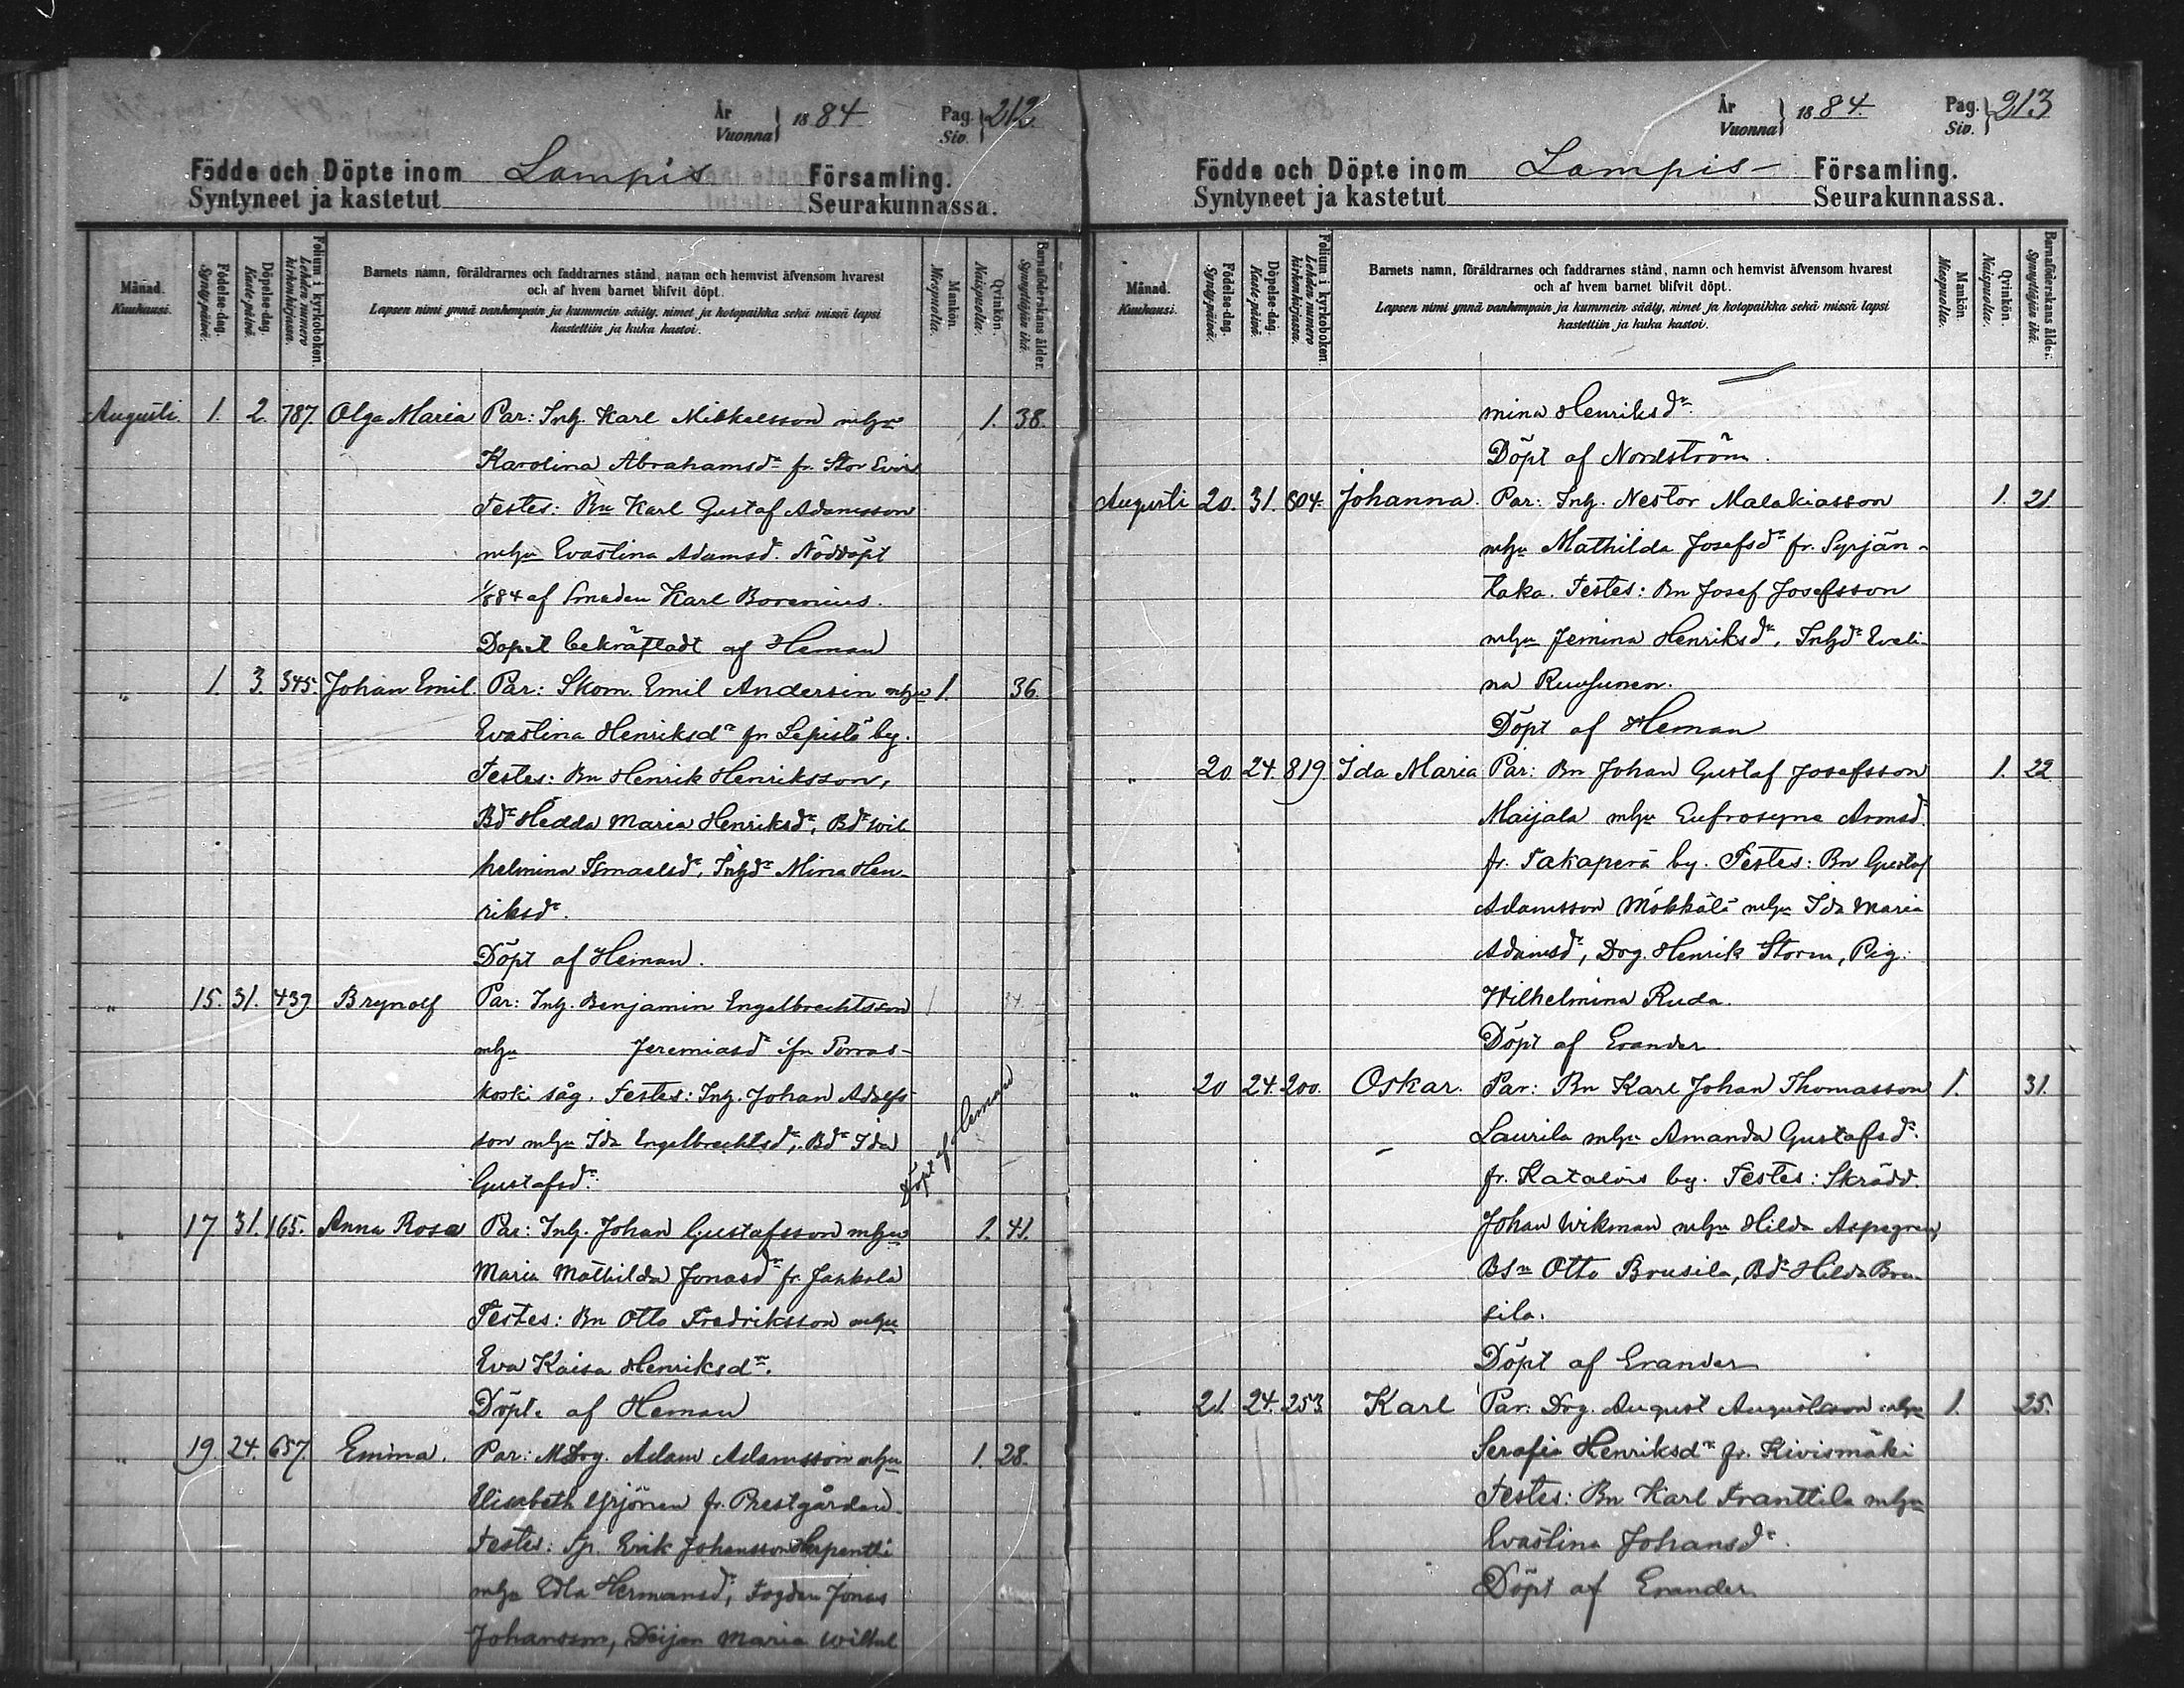 År
Vuonna } 1884
Pag.
Siv. } 212.
Födde och Döpte inom Lampis Församling.
Syntyneet ja kastetut Seurakunnassa.
Månad. Kuukausi.
Födelse-dag. Synty-päivä.
Döpelse-dag. Kaste-päivä.
Folium i kyrkoboken. Lehden numero kirkonkirjassa.
Barnets namn, föräldrarnes och faddrarnes stånd, namn och hemvist äfvensom hvarest
och af hvem barnet blifvit döpt.
Lapsen nimi ynnä vanhempain ja kummein sääty, nimet ja kotopaikka sekä missä lapsi
kastettiin ja kuka kastoi.
Mankön. Miespuolta.
Qvinkön. Naispuolta.
Barnaföderskans ålder. Synnyttäjän ikä.
Augusti. 1. 2. 787. Olga Maria Par: Inh. Karl Mikkelsson mhu 1. 38.
Karolina Abrahamsdr fr. Stor Evois
Testes: Bn Karl Gustaf Adamsson
mhu Evastina Adamsd. Nöddöpt
1/8 84 af Smeden Karl Borenius.
Dopet bekräftadt af Heman
" 1. 3. 345. Johan Emil. Par: Skom. Emil Andersin mhu 1. 36.
Evastina Henriksdr fr Lepistö by.
Testes: Bn Henrik Henriksson,
Bdr Hedda Maria Henriksdr, Bdr Wil
helmina Ismaelsdr, Inhdr Mina Hen-
riksdr.
Döpt af Heman.
" 15. 31. 439 Brynolf Par: Inh. Benjamin Engelbrechtsson 1 34.
mhu Jeremiasdr ifr Porras-
koski såg. Testes: Inh. Johan Adolfs-
son mhu Ida Engelbrechtsdr, Bdr Ida
Gustafsdr.
Döpt af Heman
" 17 31. 165. Anna Rosa Par: Inh. Johan Gustafsson mhu 1. 41.
Maria Mathilda Jonasdr fr. Jahkola
Testes: Bn Otto Fredriksson mhu
Eva Kaisa Henriksdr.
Döpt. af Heman
" 19. 24. 657. Emma. Par: MDrg. Adam Adamsson mhu 1. 28.
Elisabeth Yrjönen fr. Prestgården
Testes: Sp. Erik Johansson
mhu Edla Hermansdr, Fogden Jonas
Johansson, Deijan Maria Wilhel
År
Vuonna } 1884.
Pag.
Siv. } 213
Födde och Döpte inom Lampis- Församling.
Syntyneet ja kastetut Seurakunnassa.
Månad. Kuukausi.
Födelse-dag. Synty-päivä.
Döpelse-dag. Kaste-päivä.
Folium i kyrkoboken. Lehden numero kirkonkirjassa.
Barnets namn, föräldrarnes och faddrarnes stånd, namn och hemvist äfvensom hvarest
och af hvem barnet blifvit döpt.
Lapsen nimi ynnä vanhempain ja kummein sääty, nimet ja kotopaikka sekä missä lapsi
kastettiin ja kuka kastoi.
Mankön. Miespuolta.
Qvinkön. Naispuolta.
Barnaföderskans ålder. Synnyttäjän ikä.
mina Henriksdr.
Döpt af Nordström.
Augusti 20. 31. 804. Johanna. Par: Inh. Nestor Malakiasson 1. 21.
mhu Mathilda Josefsdr fr. Syrjän-
taka. Testes: Bn Josef Josefsson
mhu Jemina Henriksdr, Inhdr Eveli-
na Ruusunen.
Döpt af Heman
" 20 24. 819 Ida Maria Par: Bn Johan Gustaf Josefsson 1. 22
Maijala mhu Eufrosyne Aronsd.
fr. Takaperä by. Testes: Bn Gustaf
Adamsson Mökkälä mhu Ida Maria
Adamsdr, Drg. Henrik Storm, Pig.
Wilhelmina Ruda.
Döpt af Evander.
" 20 24. 200. Oskar. Par: Bn Karl Johan Thomasson 1. 31.
Laurila mhu Amanda Gustafsdr.
fr. Kataloïs by. Testes: Skrädd.
Johan Wikman mhu Hilda Aspegren,
Bsn Otto Brusila, Bdr Hilda Bru-
sila.
Döpt af Evander
" 21. 24. 253. Karl Par: Drg. August Augustsson mhu 1. 25.
Serafia Henriksdr fr. Kivismäki
Testes: Bn Karl Franttila mhu
Evastina Johansdr.
Döpt af Evander